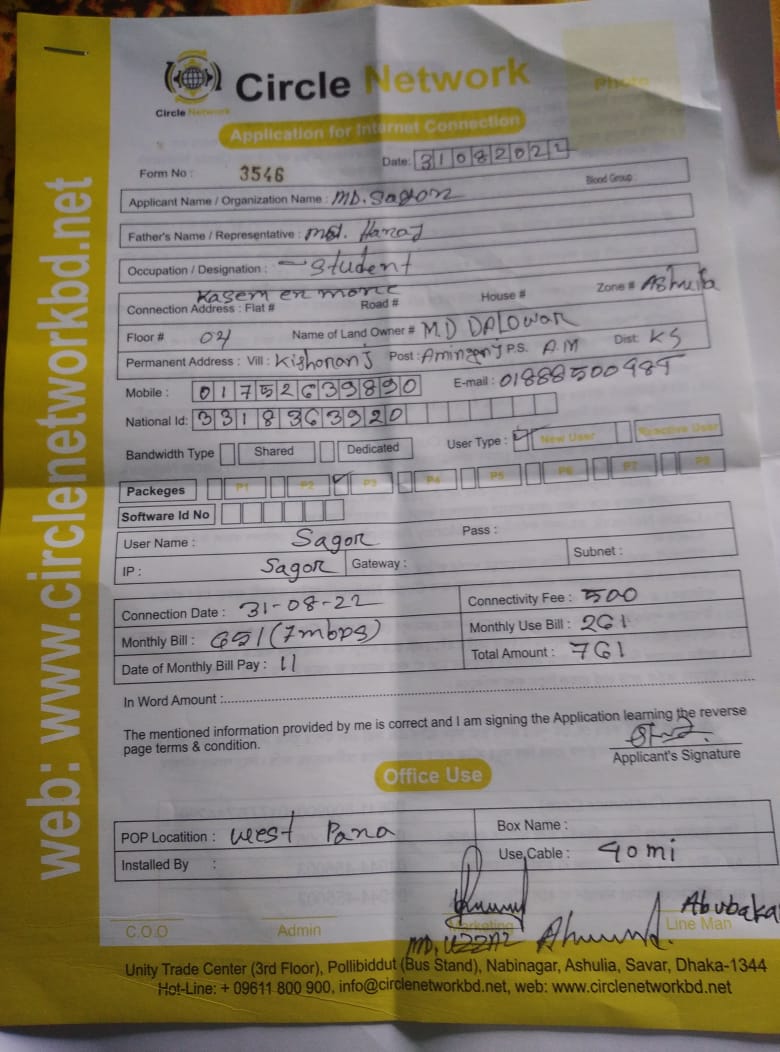 Circle Network
Circle Network
Photo
Application for Internet Connection
Form No : 3546
Date: 31082022
Blood Group :
Applicant Name / Organization Name : MD. Sagor
Father's Name / Representative : Md. Hanaj
Occupation / Designation : - Student
Connection Address : Flat # Kasem er more Road # House # Zone # Ashulia
Floor # 04 Name of Land Owner # M.D DALOWAR
Permanent Address : Vill : Kishoranj Post : Aminganj P.S. A.M Dist: KS
Mobile : 01752639890 E-mail : 01888500987
National Id: 3318363920
Bandwidth Type Shared Dedicated User Type : New User Reactive User
Packeges P1 P2 P3 P4 P5 P6 P7 P8
Software Id No
User Name : Sagor Pass :
IP : Sagor Gateway : Subnet :
Connection Date : 31-08-22 Connectivity Fee : 500
Monthly Bill : 651 (7mbps) Monthly Use Bill : 261
Date of Monthly Bill Pay : 11 Total Amount : 761
In Word Amount :
The mentioned information provided by me is correct and I am signing the Application learning the reverse
page terms & condition.
Applicant's Signature
Office Use
POP Locatition : West Para Box Name :
Installed By : Use Cable : 90 mi
C.O.O Admin Marketing Line Man
MD, UZZAL Abubaka
Unity Trade Center (3rd Floor), Pollibiddut (Bus Stand), Nabinagar, Ashulia, Savar, Dhaka-1344
Hot-Line: + 09611 800 900, info@circlenetworkbd.net, web: www.circlenetworkbd.net
web: www.circlenetworkbd.net